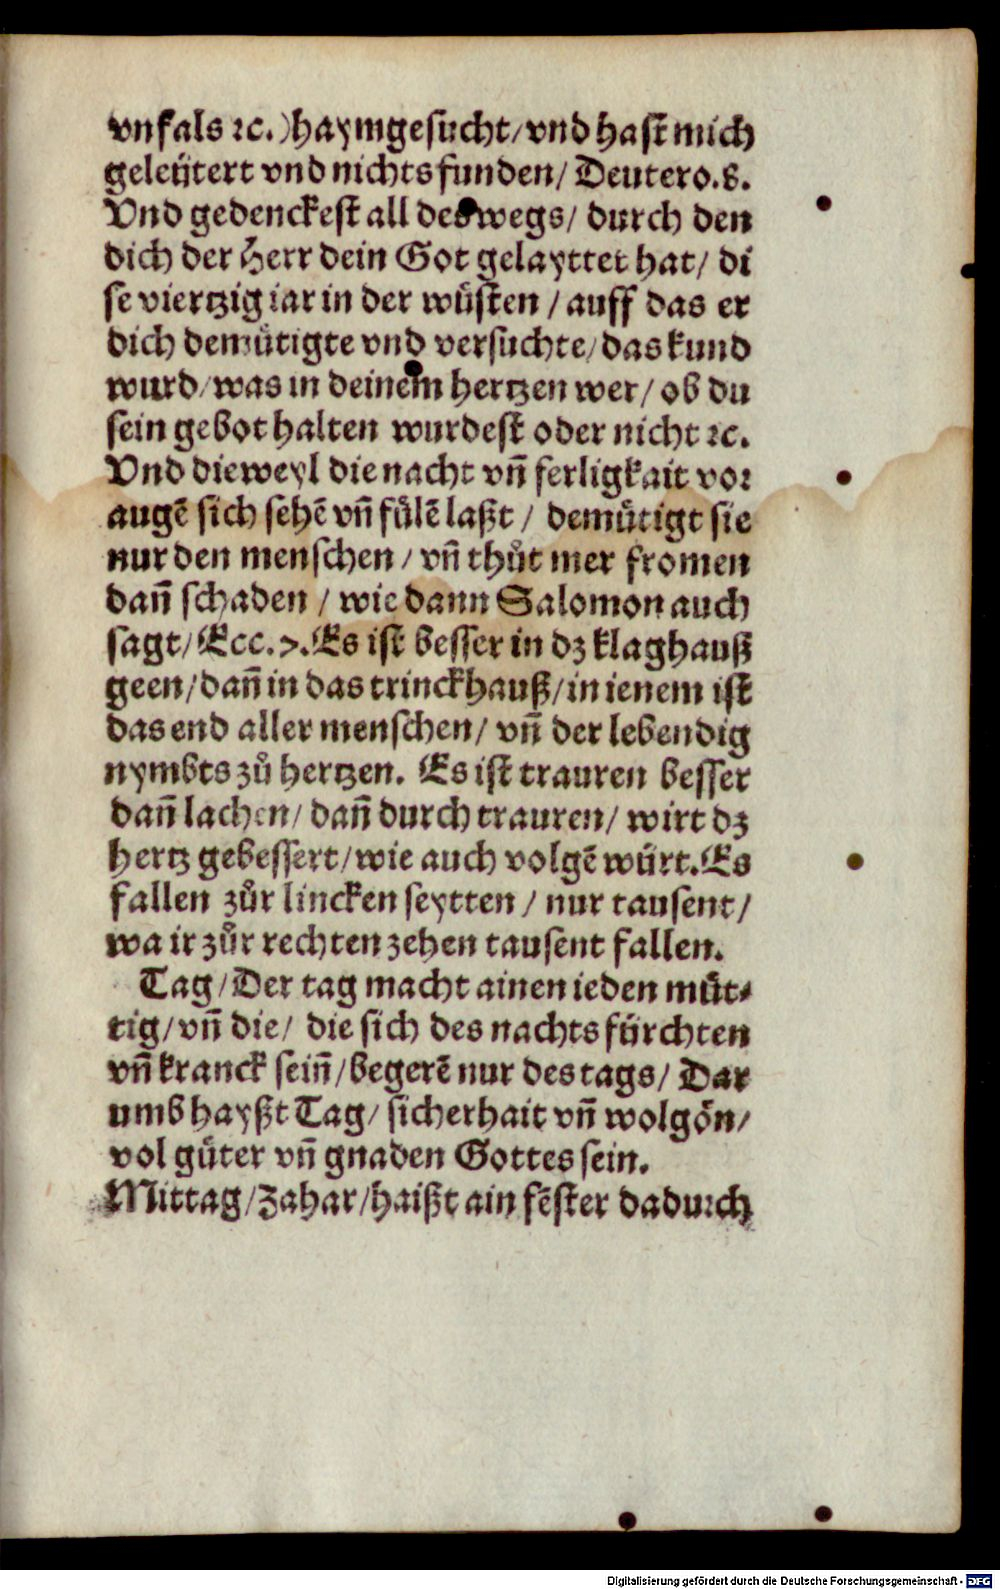 vnfals ꝛc.)haymgesucht/vnd hast mich
geleütert vnd nichts funden/ Deutero.8.
Vnd gedenckest all des wegs/ durch den
dich der Herr dein Got gelayttet hat/ di
se viertzig iar in der wůsten / auff das er
dich demůtigte vnd versuchte/das kund
wurd/was in deinem hertzen wer/ ob du
sein gebot halten wurdest oder nicht ꝛc.
Vnd dieweyl die nacht vñ ferligkait voꝛ
augē sich sehē vñ fůlē laßt / demůtigt sie
nur den menschen / vñ thůt mer fromen
dañ schaden / wie dann Salomon auch
sagt/ Ecc.7.Es ist besser in dz klaghauß
geen/dañ in das trinckhauß/in ienem ist
das end aller menschen/ vñ der lebendig
nymbts zů hertzen. Es ist trauren besser
dañ lachen/ dañ durch trauren/ wirt dz
hertz gebessert/wie auch volgē würt.Es
fallen zůr lincken seytten / nur tausent/
wa ir zůr rechten zehen tausent fallen.
Tag/Der tag macht ainen ieden můt⸗
tig/vñ die/ die sich des nachts fürchten
vñ kranck seiñ/begerē nur des tags/ Dar
umb hayßt Tag/ sicherhait vñ wolgön/
vol gůter vñ gnaden Gottes sein.
Mittag/Zahar/haißt ain fēster daduꝛch
Digitalisierung gefördert durch die Deutsche Forschungsgemeinschaft - DFG